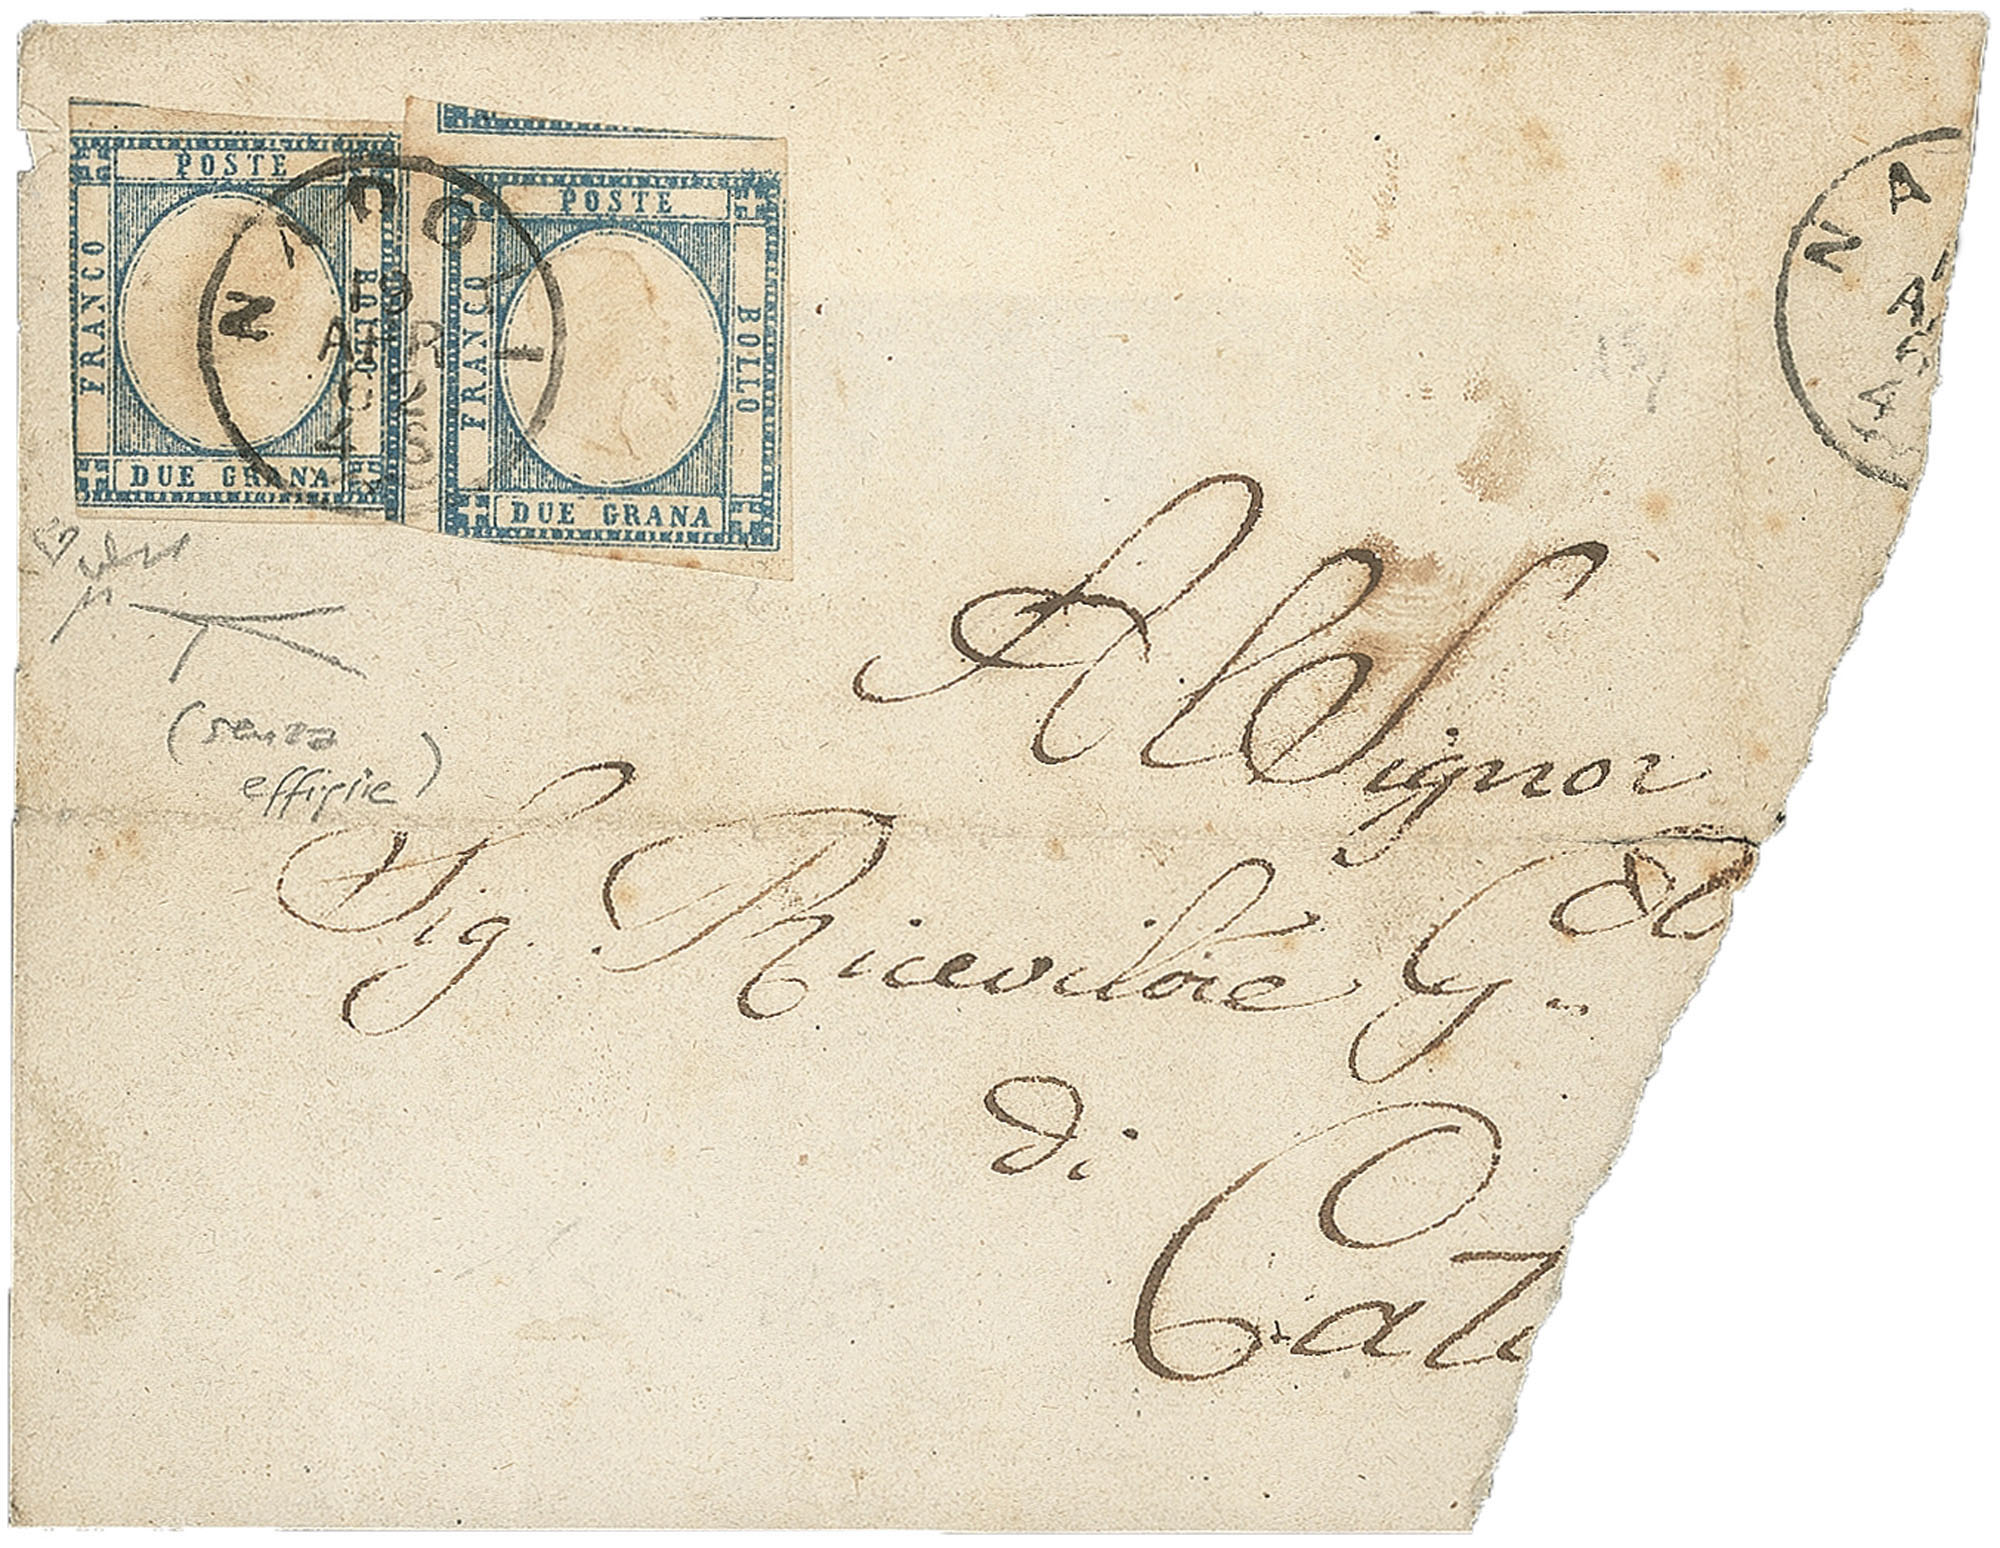 POSTE
FRANCO
BOLLO
DUE GRANA
POSTE
FRANCO
BOLLO
DUE GRANA
APR
NA
(senza
effigie)
Al Signor
Sig. Ricevitore G
di
Cat